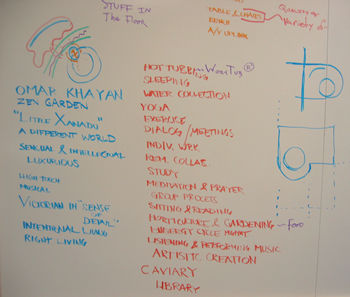 STUFF IN
THE FLOOR
BENCH
OMAR KHAYAN
ZEN GARDEN
"LITTLE XANADU"
A DIFFERENT WORLD
SENSUAL & INTELLECTUAL
LUXURIOUS
HIGH TOUCH
MUSICAL
VICTORIAN IN "SENSE
OF
DETAIL"
INTENTIONAL LIVING
RIGHT LIVING
HOT TUBBING - WORKTUB ®
SLEEPING
WATER COLLECTION
YOGA
EXERCISE
DIALOG/MEETINGS
INDIV. WORK
REM. COLLAB.
STUDY
MEDITATION & PRAYER
GROUP PROCESS
SITTING & READING
HORTICULTURE & GARDENING - FOOD
ENERGY CYCLE MGMT
LISTENING & PERFORMING MUSIC
ARTISTIC CREATION
CAVIARY
LIBRARY